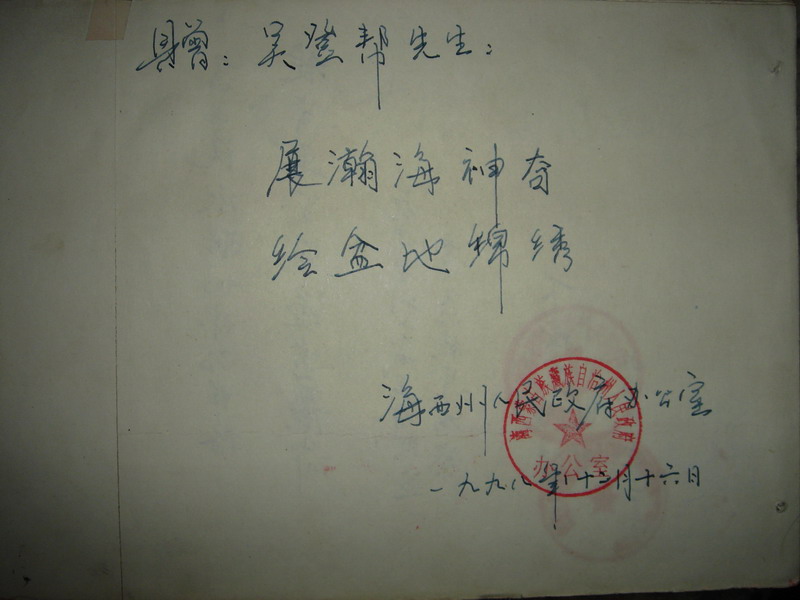 吴登帮先生：
展瀚海神奇
绘盆地锦绣
海西州人民政府办公室
一九九八年十二月十六日
海西蒙古族藏族自治州人民政府
办公室